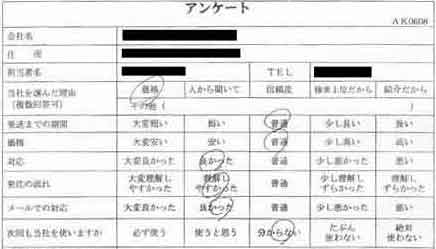 アンケート
AK0608
会社名
住　所
担当者名　TEL
当社を選んだ理由　価格　人から聞いて　信頼度　検索上位だから　紹介だから
（複数回答可）　その他（　）
発送までの期間　大変短い　短い　普通　少し長い　長い
価格　大変安い　安い　普通　少し高い　高い
対応　大変良かった　良かった　普通　少し悪かった　悪い
発注の流れ　大変理解しやすかった　理解しやすかった　普通　少し理解しずらかった　理解しずらかった
メールでの対応　大変良かった　良かった　普通　少し悪かった　悪い
次回も当社を使いますか　必ず使う　使うと思う　分からない　たぶん使わない　絶対使わない